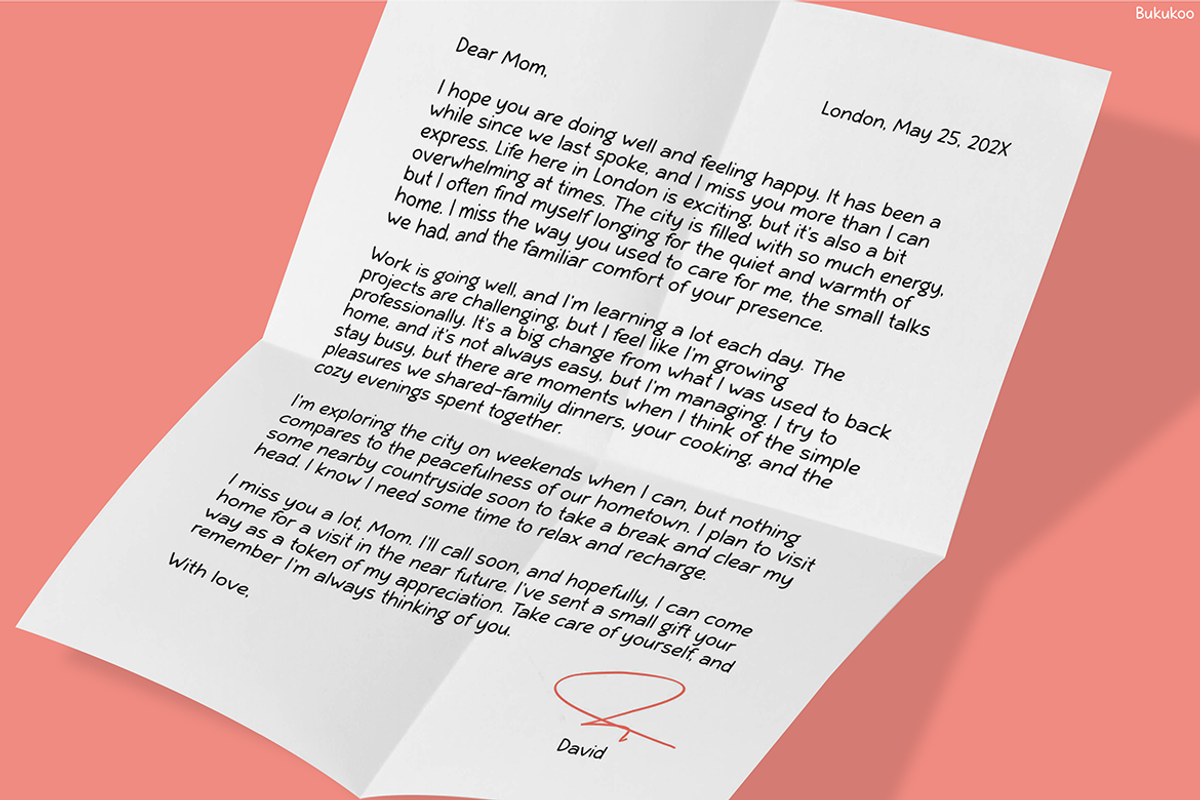 Bukukoo
Dear Mom,
London, May 25, 202X
I hope you are doing well and feeling happy. It has been a
while since we last spoke, and I miss you more than I can
express. Life here in London is exciting, but it's also a bit
overwhelming at times. The city is filled with so much energy,
but I often find myself longing for the quiet and warmth of
home. I miss the way you used to care for me, the small talks
we had, and the familiar comfort of your presence.
Work is going well, and I'm learning a lot each day. The
projects are challenging, but I feel like I'm growing
professionally. It's a big change from what I was used to back
home, and it's not always easy, but I'm managing. I try to
stay busy, but there are moments when I think of the simple
pleasures we shared-family dinners, your cooking, and the
cozy evenings spent together.
I'm exploring the city on weekends when I can, but nothing
compares to the peacefulness of our hometown. I plan to visit
some nearby countryside soon to take a break and clear my
head. I know I need some time to relax and recharge.
I miss you a lot, Mom. I'll call soon, and hopefully, I can come
home for a visit in the near future. I've sent a small gift your
way as a token of my appreciation. Take care of yourself, and
remember I'm always thinking of you.
With love,
David